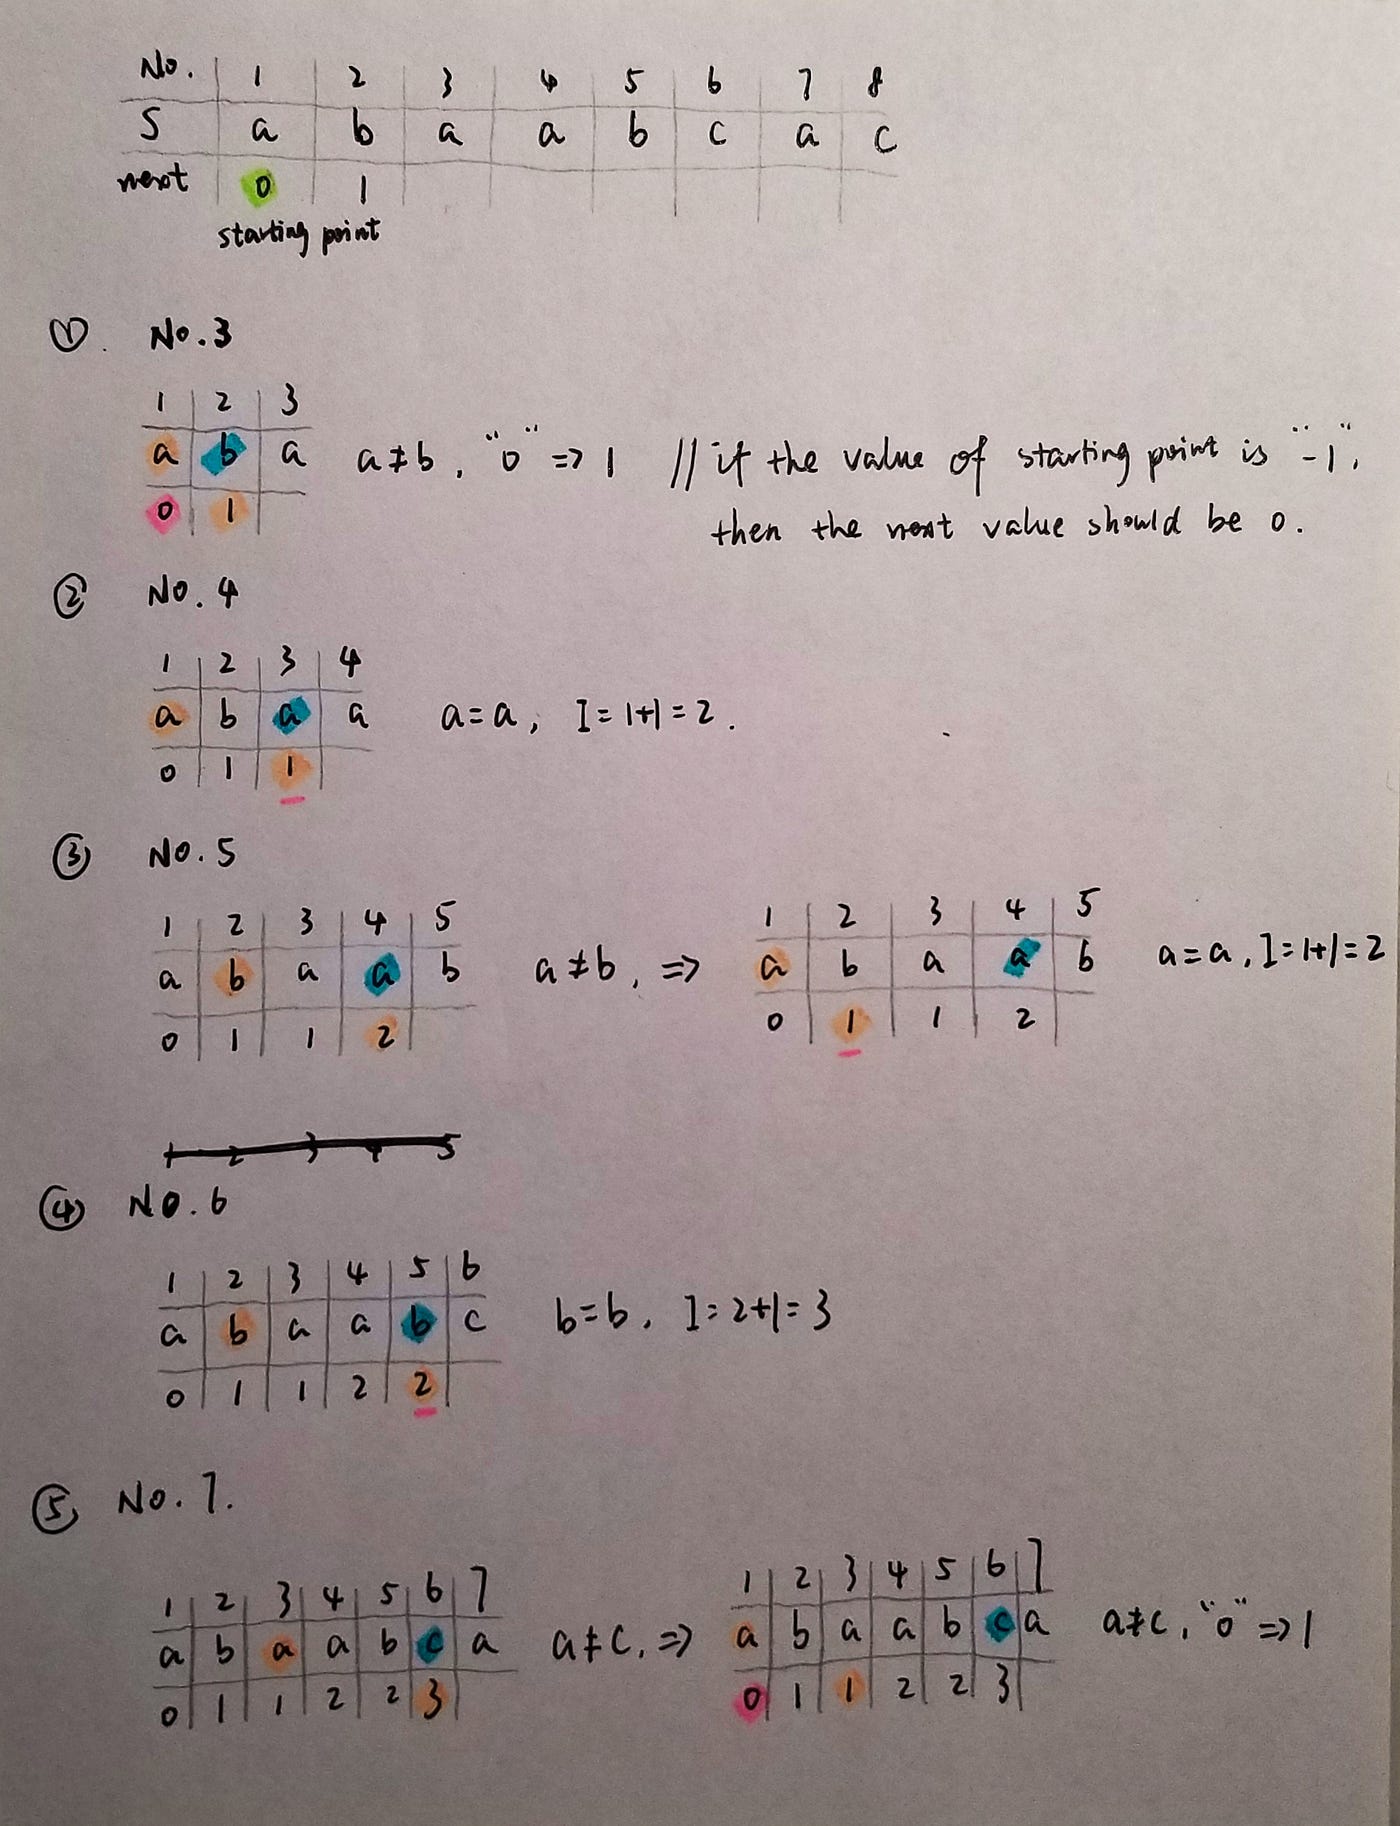 No. 1 2 3 4 5 6 7 8
S a b a a b c a c
next 0 1
starting point
① No.3
1 2 3
a b a a≠b, "0" => 1 // if the value of starting point is "-1",
0 1 then the next value should be 0.
② No. 4
1 2 3 4
a b a a a=a, I=1+1=2.
0 1 1
③ No. 5
1 2 3 4 5 1 2 3 4 5
a b a a b a≠b, => a b a a b a=a, I=1+1=2
0 1 1 2 0 1 1 2
1 2 3 4 5
④ No. 6
1 2 3 4 5 6
a b a a b c b=b, I=2+1=3
0 1 1 2 2
⑤ No. 7.
1 2 3 4 5 6 7 1 2 3 4 5 6 7
a b a a b c a a≠c, => a b a a b c a a≠c, "0" => 1
0 1 1 2 2 3 0 1 1 2 2 3